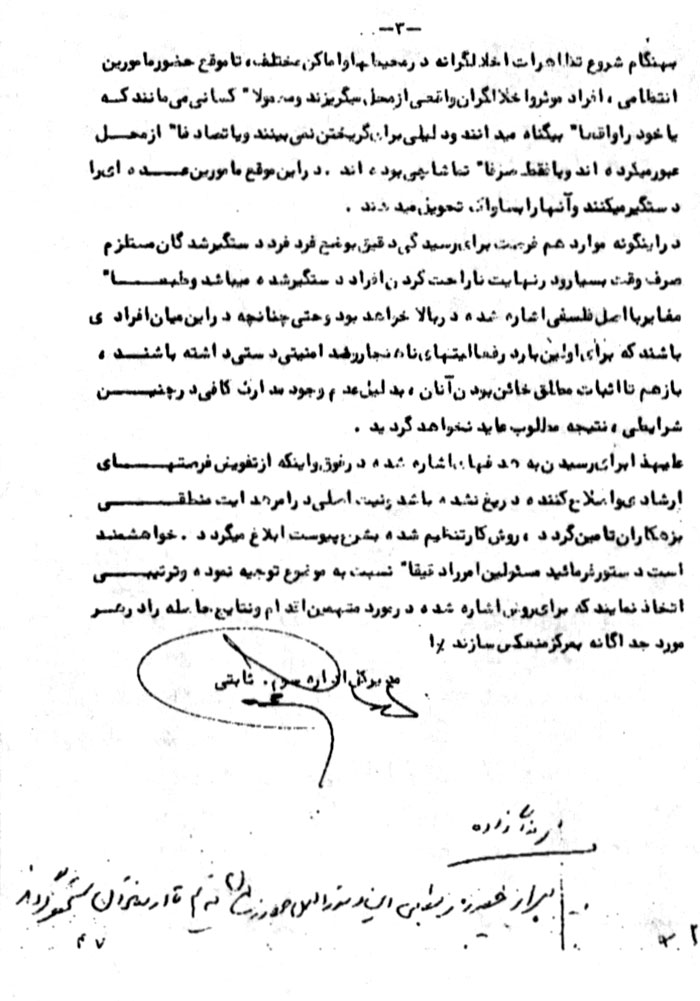 -۳-
بهنگام شروع تظاهرات اخلالگرانه در محیطها و اماکن مختلف، تا موقع حضور مامورین
انتظامی، افراد موثر و اخلالگران واقعی از محل میگریزند و معمولا" کسانی می مانند که
یا خود را واقعا" بیگناه میدانند و دلیلی برای گریختن نمی بینند و یا تصادفا" از محل
عبور میکرده اند و یا فقط صرفا" تماشاچی بوده اند. در این موقع مامورین عده ای را
دستگیر میکنند و آنها را بساواک تحویل میدهند.
در اینگونه موارد هم فرصت برای رسیدگی دقیق بوضع فرد فرد دستگیرشدگان مستلزم
صرف وقت بسیار و در نهایت ناراحت کردن افراد دستگیر شده میباشد و طبعا"
مغایر با اصل فلسفی اشاره شده در بالا خواهد بود و حتی چنانچه در این میان افرادی
باشند که برای اولین بار در فعالیتهای ناهنجار و ضد امنیتی دستی داشته باشند،
باز هم تا اثبات مطلق خائن بودن آنان، بدلیل عدم وجود مدارک کافی در چنین
شرایطی، نتیجه مطلوب عاید نخواهد گردید.
علیهذا برای رسیدن به هدفهای اشاره شده در فوق و اینکه از تفویض فرصتهای
ارشادی و اصلاح کننده دریغ نشده باشد و نیت اصلی در امر هدایت منطقی
بزهکاران تامین گردد، روش کار تنظیم شده بشرح پیوست ابلاغ میگردد. خواهشمند
است دستور فرمائید مسئولین امر دقیقا" نسبت به موضوع توجیه نموده و ترتیبی
اتخاذ نمایند که برای روش اشاره شده در مورد متهمین اقدام و نتایج حاصله را در هر
مورد جداگانه بمرکز منعکس سازند
مدیرکل اداره سوم. ثابتی
۴۷